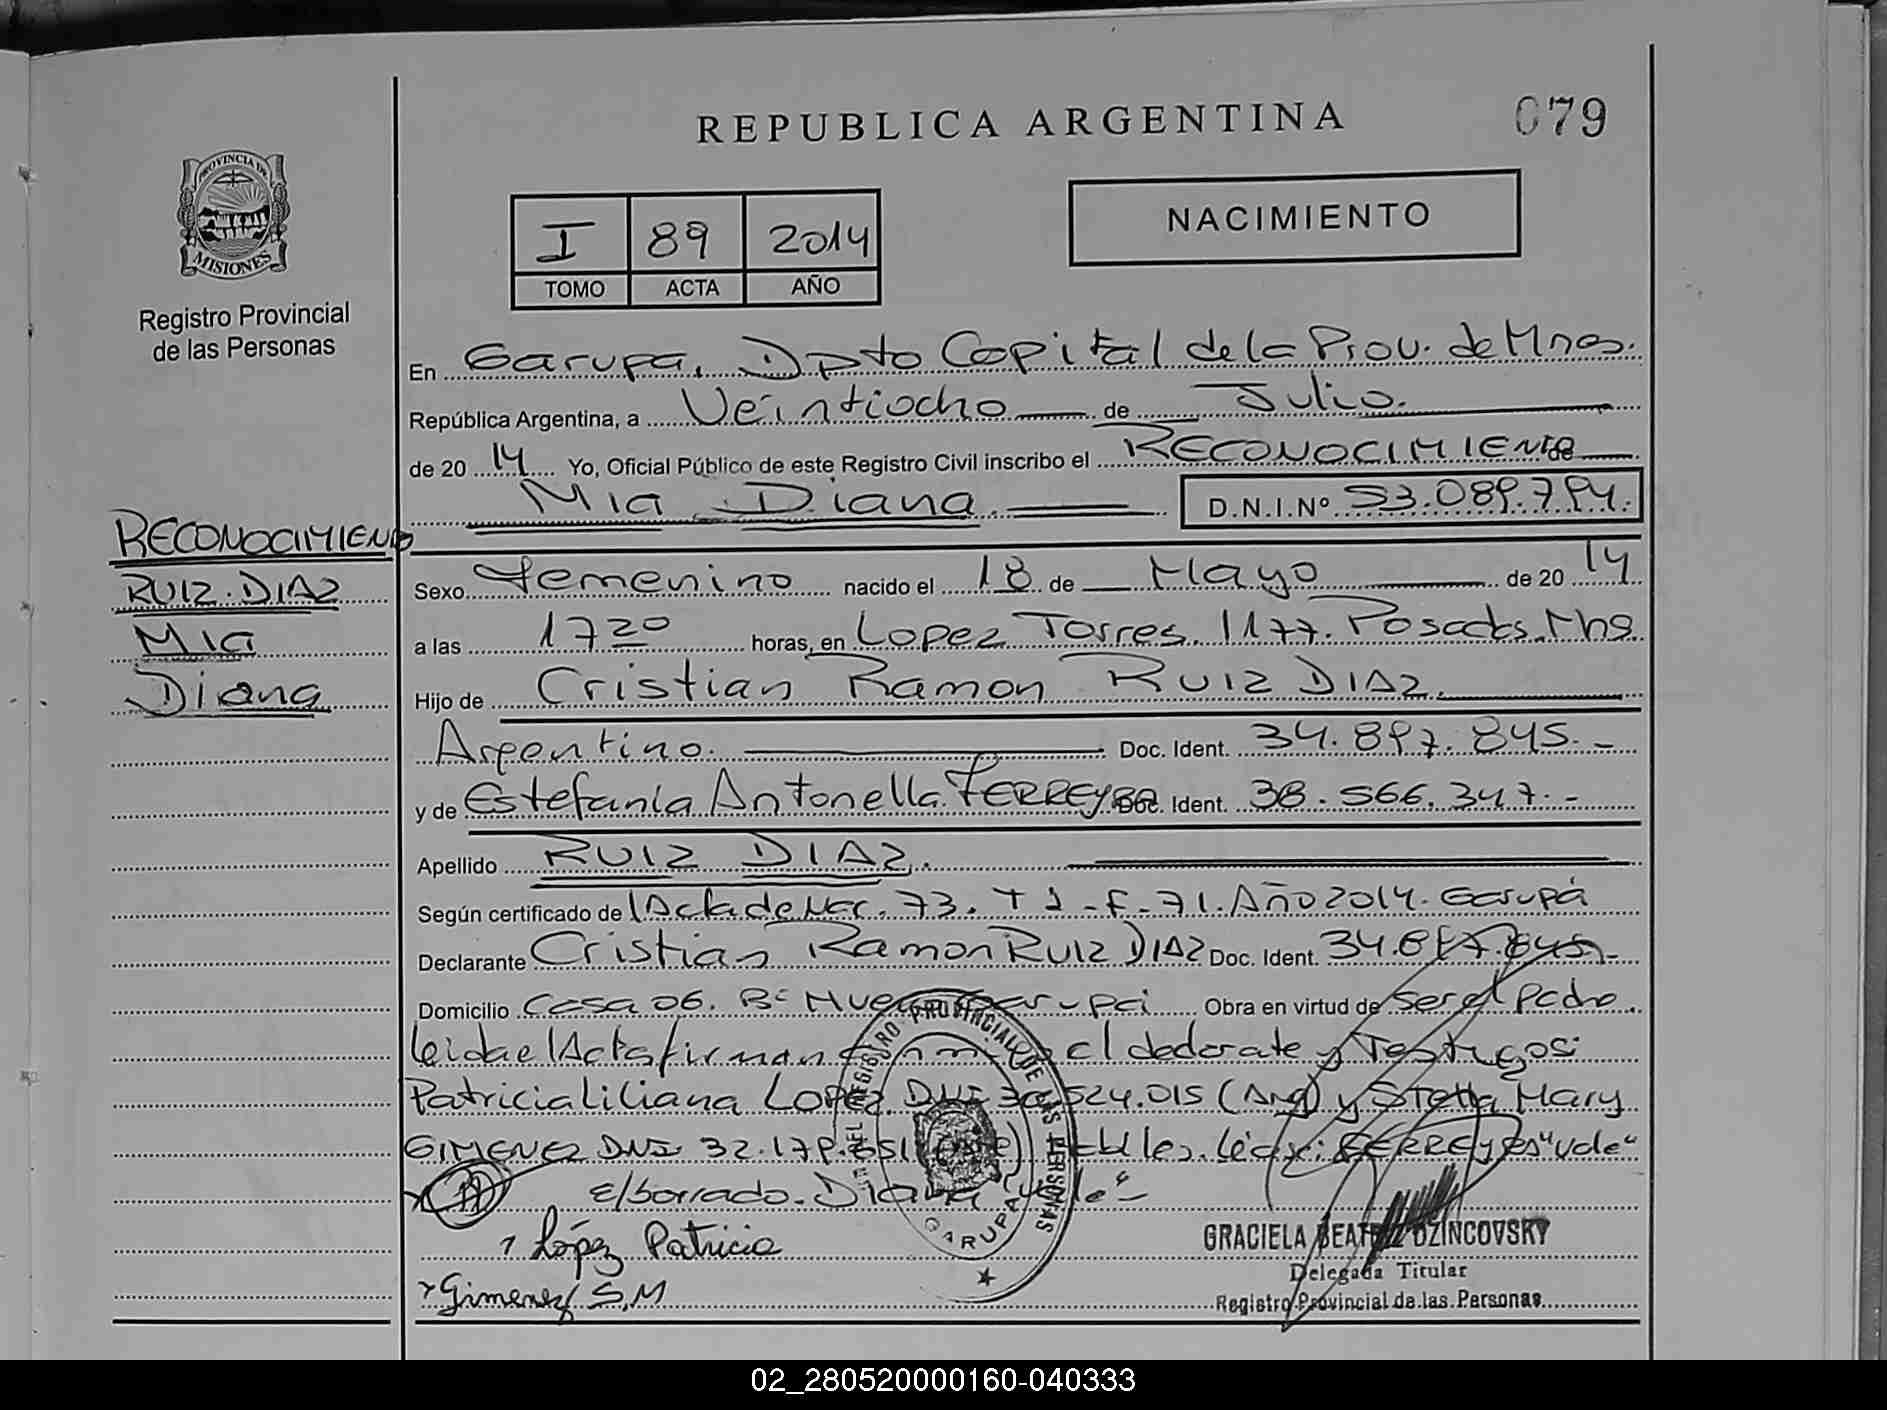 REPUBLICA ARGENTINA
079
PROVINCIA DE
MISIONES
Registro Provincial
de las Personas
I 89 2014
TOMO ACTA AÑO
NACIMIENTO
En Garupa, Dpto Capital de la Prov. de Mnes.
República Argentina, a Veintiocho de Julio.
de 20 14 Yo, Oficial Público de este Registro Civil inscribo el RECONOCIMIENTO de
Mia Diana. D.N.I.Nº 53.089.794.
RECONOCIMIENTO
RUIZ DIAZ
Mia
Diana
Sexo Femenino nacido el 18 de Mayo de 20 14
a las 17 20 horas, en Lopez Torres 1177. Posadas. Mns.
Hijo de Cristian Ramon RUIZ DIAZ.
Argentino. Doc. Ident. 34.897.845.-
y de Estefania Antonella FERREYRA Doc. Ident. 38.566.347.-
Apellido RUIZ DIAZ.
Según certificado de Acta de Nac. 73. T 1 - F - 71. Año 2014. Garupá
Declarante Cristian Ramon RUIZ DIAZ Doc. Ident. 34.897.845.-
Domicilio Casa 06. Bº Nuevo Garupa Obra en virtud de ser el Padre.
leida el Acta firman el declarante y Testigos:
Patricia Liliana LOPEZ DNI 30.524.015 (Arg) y Stella Mary
GIMENEZ DNI 32.179.851 FERREYRA "vale"
E/borrado. Diana "vale"
López Patricia
Gimenez S.M
REGISTRO PROVINCIAL DE LAS PERSONAS
GARUPA
GRACIELA BEATRIZ DZINCOVSKY
Delegada Titular
Registro Provincial de las Personas
02_280520000160-040333